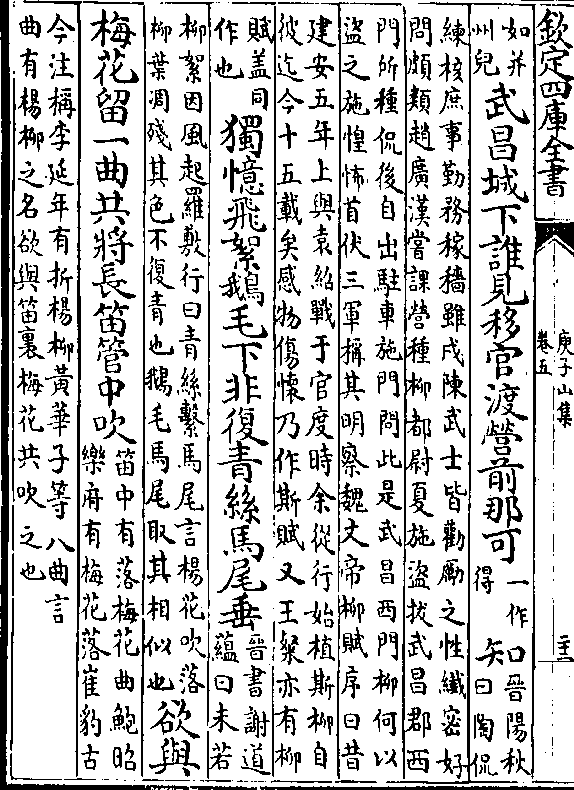 欽定四庫全書
庾子山集
卷五
二十二
如并
州兒
武昌城下誰見移官渡營前那可
一作
得
知
晉陽秋
曰陶侃
練核庶事勤務稼穡雖戍陳武士皆勸勵之性纖密好
問頗類趙廣漢嘗課營種柳都尉夏施盜拔武昌郡西
門所種侃後自出駐車施門問此是武昌西門柳何以
盜之施惶怖首伏三軍稱其明察魏文帝柳賦序曰昔
建安五年上與袁紹戰于官度時余從行始植斯柳自
彼迄今十五載矣感物傷懷乃作斯賦又王粲亦有柳
賦盖同
作也
獨憶飛絮鵝毛下非復青絲馬尾垂
晉書謝道
蘊曰未若
柳絮因風起羅敷行曰青絲繫馬尾言楊花吹落
柳葉凋殘其色不復青也鵝毛馬尾取其相似也
欲與
梅花留一曲共將長笛管中吹
笛中有落梅花曲鮑昭
樂府有梅花落崔豹古
今注稱李延年有折楊柳黃華子等八曲言
曲有楊柳之名欲與笛裏梅花共吹之也